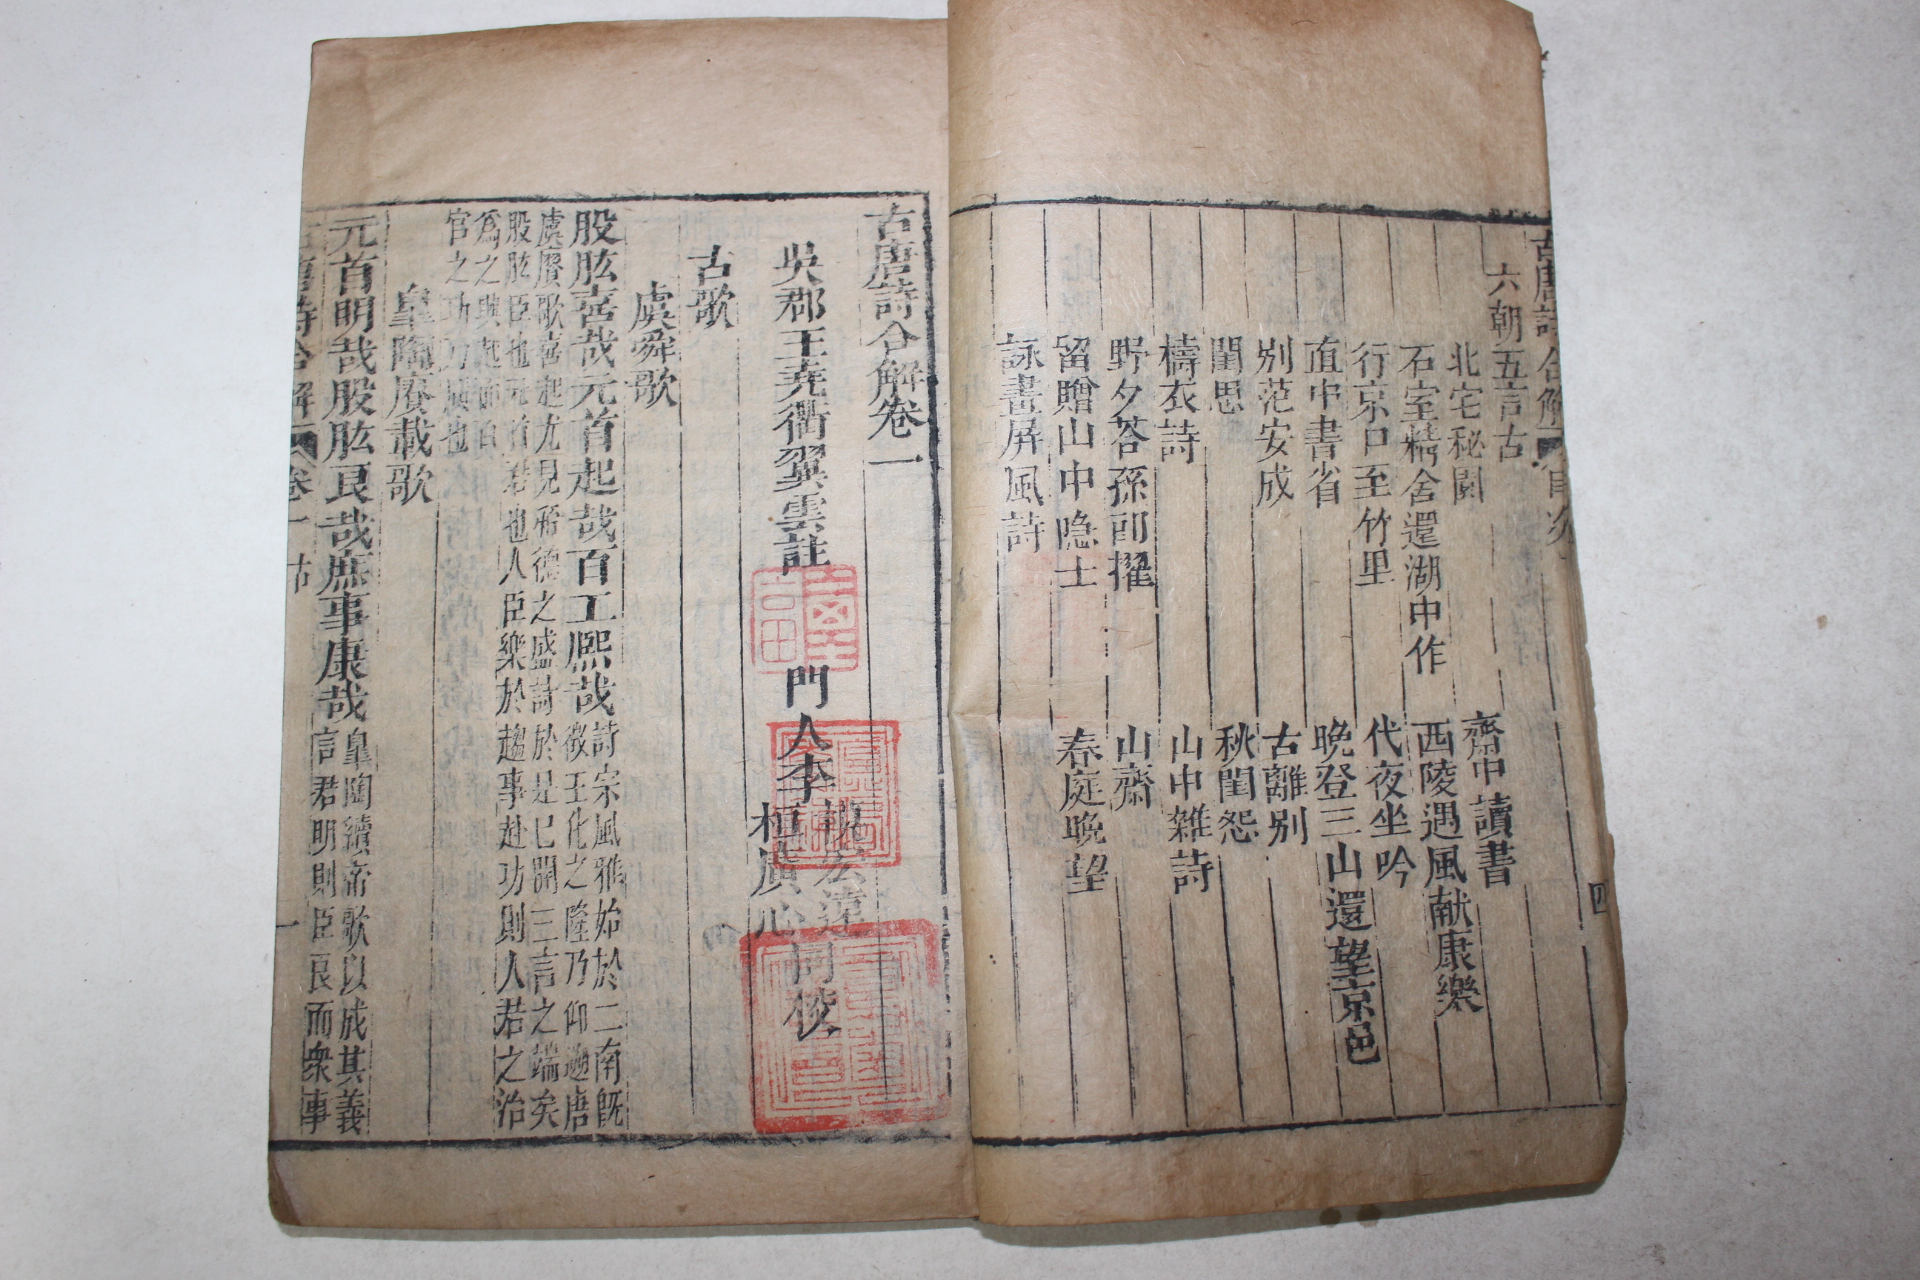 古唐詩合解
六朝五言古
齋中讀書
北宅秘園
西陵遇風献康樂
石室精舍還湖中作
代夜坐吟
行京口至竹里
晚登三山還望京邑
直中書省
古離別
別范安成
秋閨怨
閨思
山中雜詩
檮衣詩
山齋
野夕荅孫郎擢
春庭晚望
留贈山中隐士
詠畫屏風詩
四
古唐詩合解卷一
吳郡王堯衢翼雲註
門人李
桓廣心
同校
古歌
虞舜歌
股肱喜哉元首起哉百工熈哉
詩宗風雅始於二南旣
徵王化之隆乃仰遡唐
虞賡歌喜起尤見君德之盛詩於是已開三言之端矣
股肱臣也元首君也人臣樂於趨事赴功則人君之治
為之興起而百
官之功功廣也
皇陶賡載歌
元首明哉股肱良哉庶事康哉
皇陶續帝歌以成其義
言君明則臣良而衆事
古唐詩合解
卷一
一